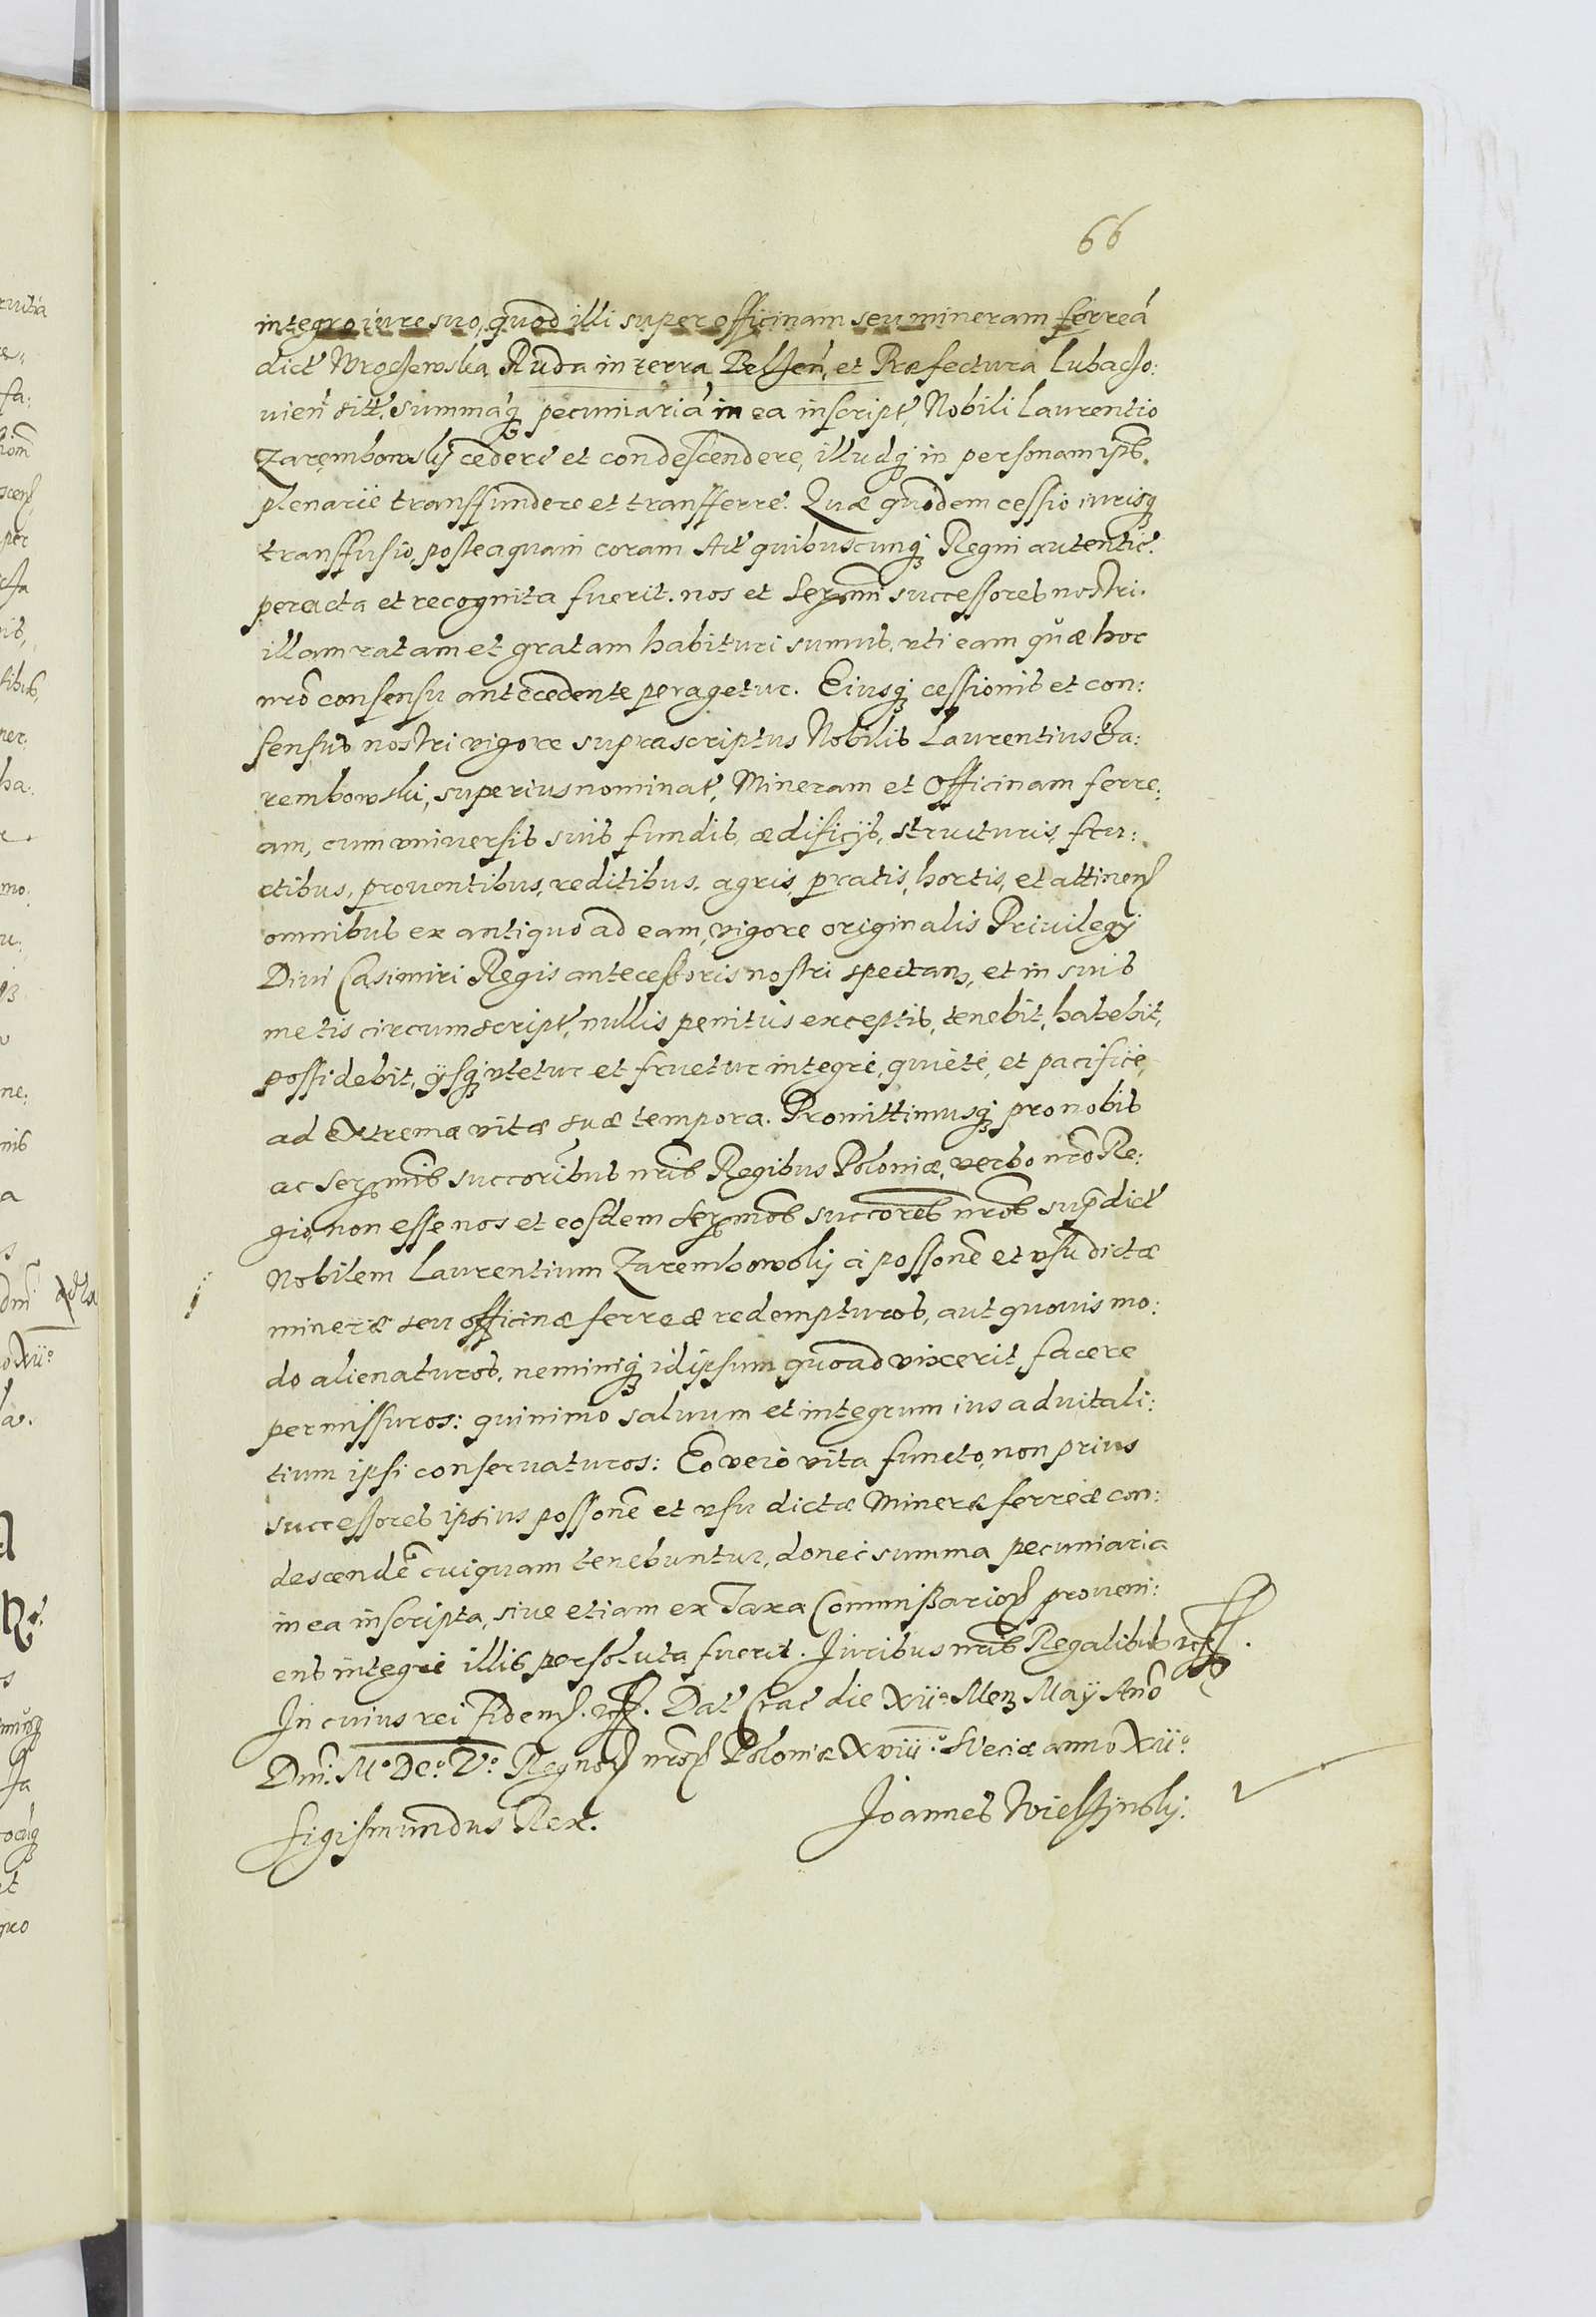 66
integro iure suo, quod illi super officinam seu mineram ferreā
dict̃ Wroczewska Ruda in terra Belzeñ, et Præfectura Lubaczo:
uieñ sit̃, summāq; pecuniariā in ea inscript̃, Nobili Laurentio
Zarembowskÿ cedere et condescendere, illudq; in personam ipsiʒ
plenarie transfundere et transferre. Quæ quidem cessio iurisq;
transfusio, posteaquam coram Act̃ quibuscunq; Regni autentic̃.
peracta et recognita fuerit. nos et Sermi successores nostri.
illam ratam et gratam habituri sumus, uti eam quæ hoc
nrõ consensu antecedente peragetur. Eiusq; cessionis et con:
sensus nostri vigore suprascriptus Nobilis Laurentius Za:
rembowski, superius nominat̃, Mineram et Officinam ferre:
am, cum vniuersis suis fundis, ædificijs, structuris, fru:
ctibus, prouentibus, reditibus, agris, pratis, hortis, et attinen͂
omnibus ex antiquo ad eam, vigore originalis Priuilegÿ
Diui Casimiri Regis antecessoris nostri spectan͂, et in suis
metis circumscript̃, nullis penitus exceptis, tenebit, habebit,
possidebit, ÿsq; vtetur et fruetur integre, quiete, et pacifice,
ad extrema vitæ suæ tempora. Promittimusq; pro nobis
ac Sermis succoribus nris Regibus Poloniæ, verbo nrõ Re:
gio, non esse nos et eosdem Sermos succores nros supradict̃
Nobilem Laurentium Zarembowskÿ á possonẽ et vsu dictæ
mineræ seu officinæ ferreæ redempturos, aut quouis mo:
do alienaturos, neminiq; idipsum quoad vixerit facere
permissuros: quinimo saluum et integrum ius aduitali:
tium ipsi conseruaturos: Eo vero vita functo, non prius
successores ipsius possonẽ et vsu dictæ Mineræ ferreæ con:
descendẽ cuiquam tenebuntur, donec summa pecuniaria
in ea inscripta, siue etiam ex Taxa Commissarior͂ proueni:
ens integre illis persoluta fuerit. Juribus nris Regalibus
In cuius rei fidem. Dat̃ Crac̃ die XII° Menʒ Maÿ Anõ
Dni. M° DC° V° Regnor͂ nror͂ Poloniæ XVIII° Sueciæ anno XII°
Sigismundus Rex. Joannes Wielzinskÿ.